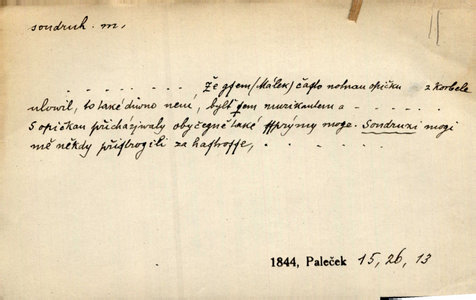 soudruh. m.
. . . . . . . . . . . . . Že gsem (Málek) často notnau opičku z korbele
ulowil, to také diwno není, bylť sem muzikantem a . . . . . .
S opičkau přicházjwaly obyčegně také ssprýmy moge. Saudruzi mogi
mě někdy přistrogili za hastrosse, . . . . . . .
1844, Paleček 15, 26, 13